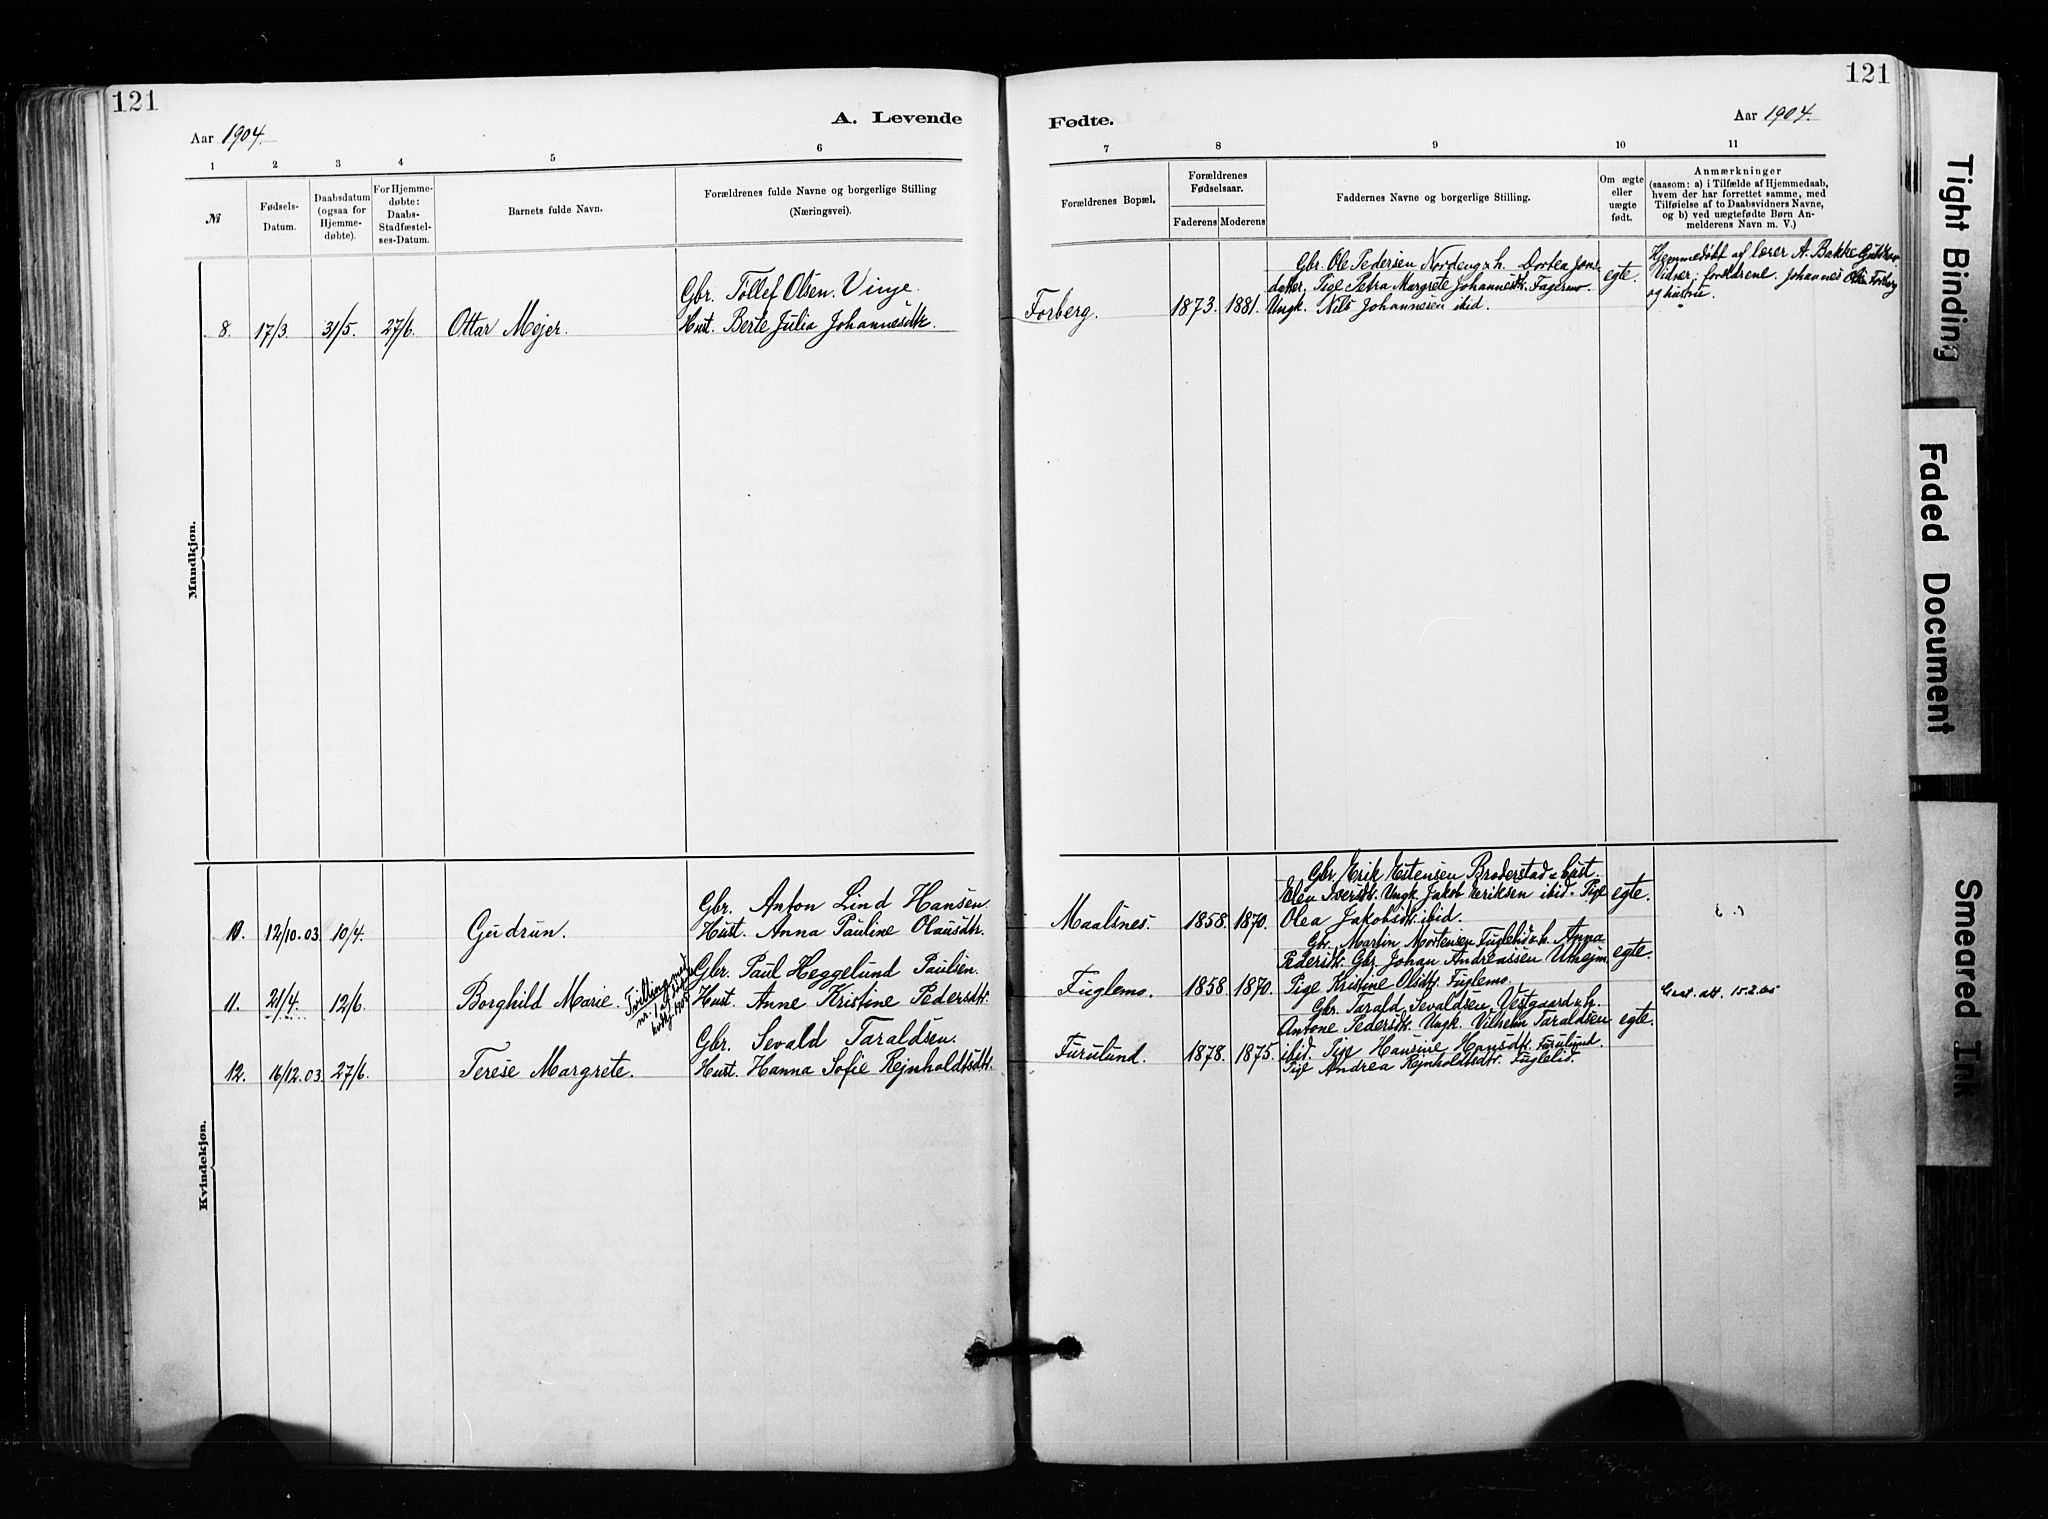 121
121
A. Levende
Fødte.
Aar 1904.
Aar 1904.
1 2 3 4 5 6
7 8 9 10 11
№
Fødsels-
Datum.
Daabsdatum
(ogsaa for
Hjemme-
døbte).
For Hjemme-
døbte:
Daabs-
Stadfæstel-
ses-Datum.
Barnets fulde Navn.
Forældrenes fulde Navne og borgerlige Stilling
(Næringsvei).
Forældrenes Bopæl.
Forældrenes
Fødselsaar.
Faderens Moderens
Faddernes Navne og borgerlige Stilling.
Om ægte
eller
uægte
født.
Anmærkninger
(saasom: a) i Tilfælde af Hjemmedaab,
hvem der har forrettet samme, med
Tilføielse af to Daabsvidners Navne,
og b) ved uægtefødte Børn An-
melderens Navn m. V.)
Mandkjøn.
8. 17/3. 31/5. 27/6. Ottar Mejer.
Gbr. Tollef Olsen. Vinje.
Hust. Berte Julia Johannesdtr.
Forberg. 1873. 1881.
Gbr. Ole Pedersen Nordeng & h. Dortea Jons-
dotter. Pige Petra Margrete Johannesdtr. Fagermo.
Ungk. Nils Johannesen ibid.
egte.
Hjemmedøbt af lærer A. Bakke
Vidner: forældrene. Johannes Forberg
og hustru.
Kvindekjøn.
10. 12/10.03. 10/4. Gudrun.
Gbr. Anton Lind Hansen.
Hust. Anna Pauline Olausdtr.
Maalsnes. 1858. 1870.
Gbr. Erik Estensen Broderstad & hust.
Elen Iversdtr. Ungk. Jakob Eriksen ibid. Pige
Olea Jakobsdtr. ibid.
egte.
11. 21/4. 12/6. Borghild Marie.
Tvilling med
nr. 1
Gbr. Paul Heggelund Paulsen.
Hust. Anne Kristine Pedersdtr.
Fuglemo. 1858 1870.
Gbr. Martin Mortensen Fuglelid & h. Anna
Pedersdtr. Gbr. Johan Andreassen Utheim.
Pige Kristine Olsdtr. Fuglemo.
egte.
att. 15.2.05
12. 16/12.03. 27/6. Terese Margrete.
Gbr. Sevald Taraldsen.
Hust. Hanna Sofie Rejnholdtsdtr.
Furulund. 1878. 1875.
Gbr. Tarald Sevaldsen Vestgaard & h.
Antone Pedersdtr. Ungk. Vilhelm Taraldsen
ibid. Pige Hansine Hansdtr. Furulund.
Pige Andrea Rejnholdtsdtr. Fuglelid.
egte.
Tight Binding
Faded Document
Smeared Ink